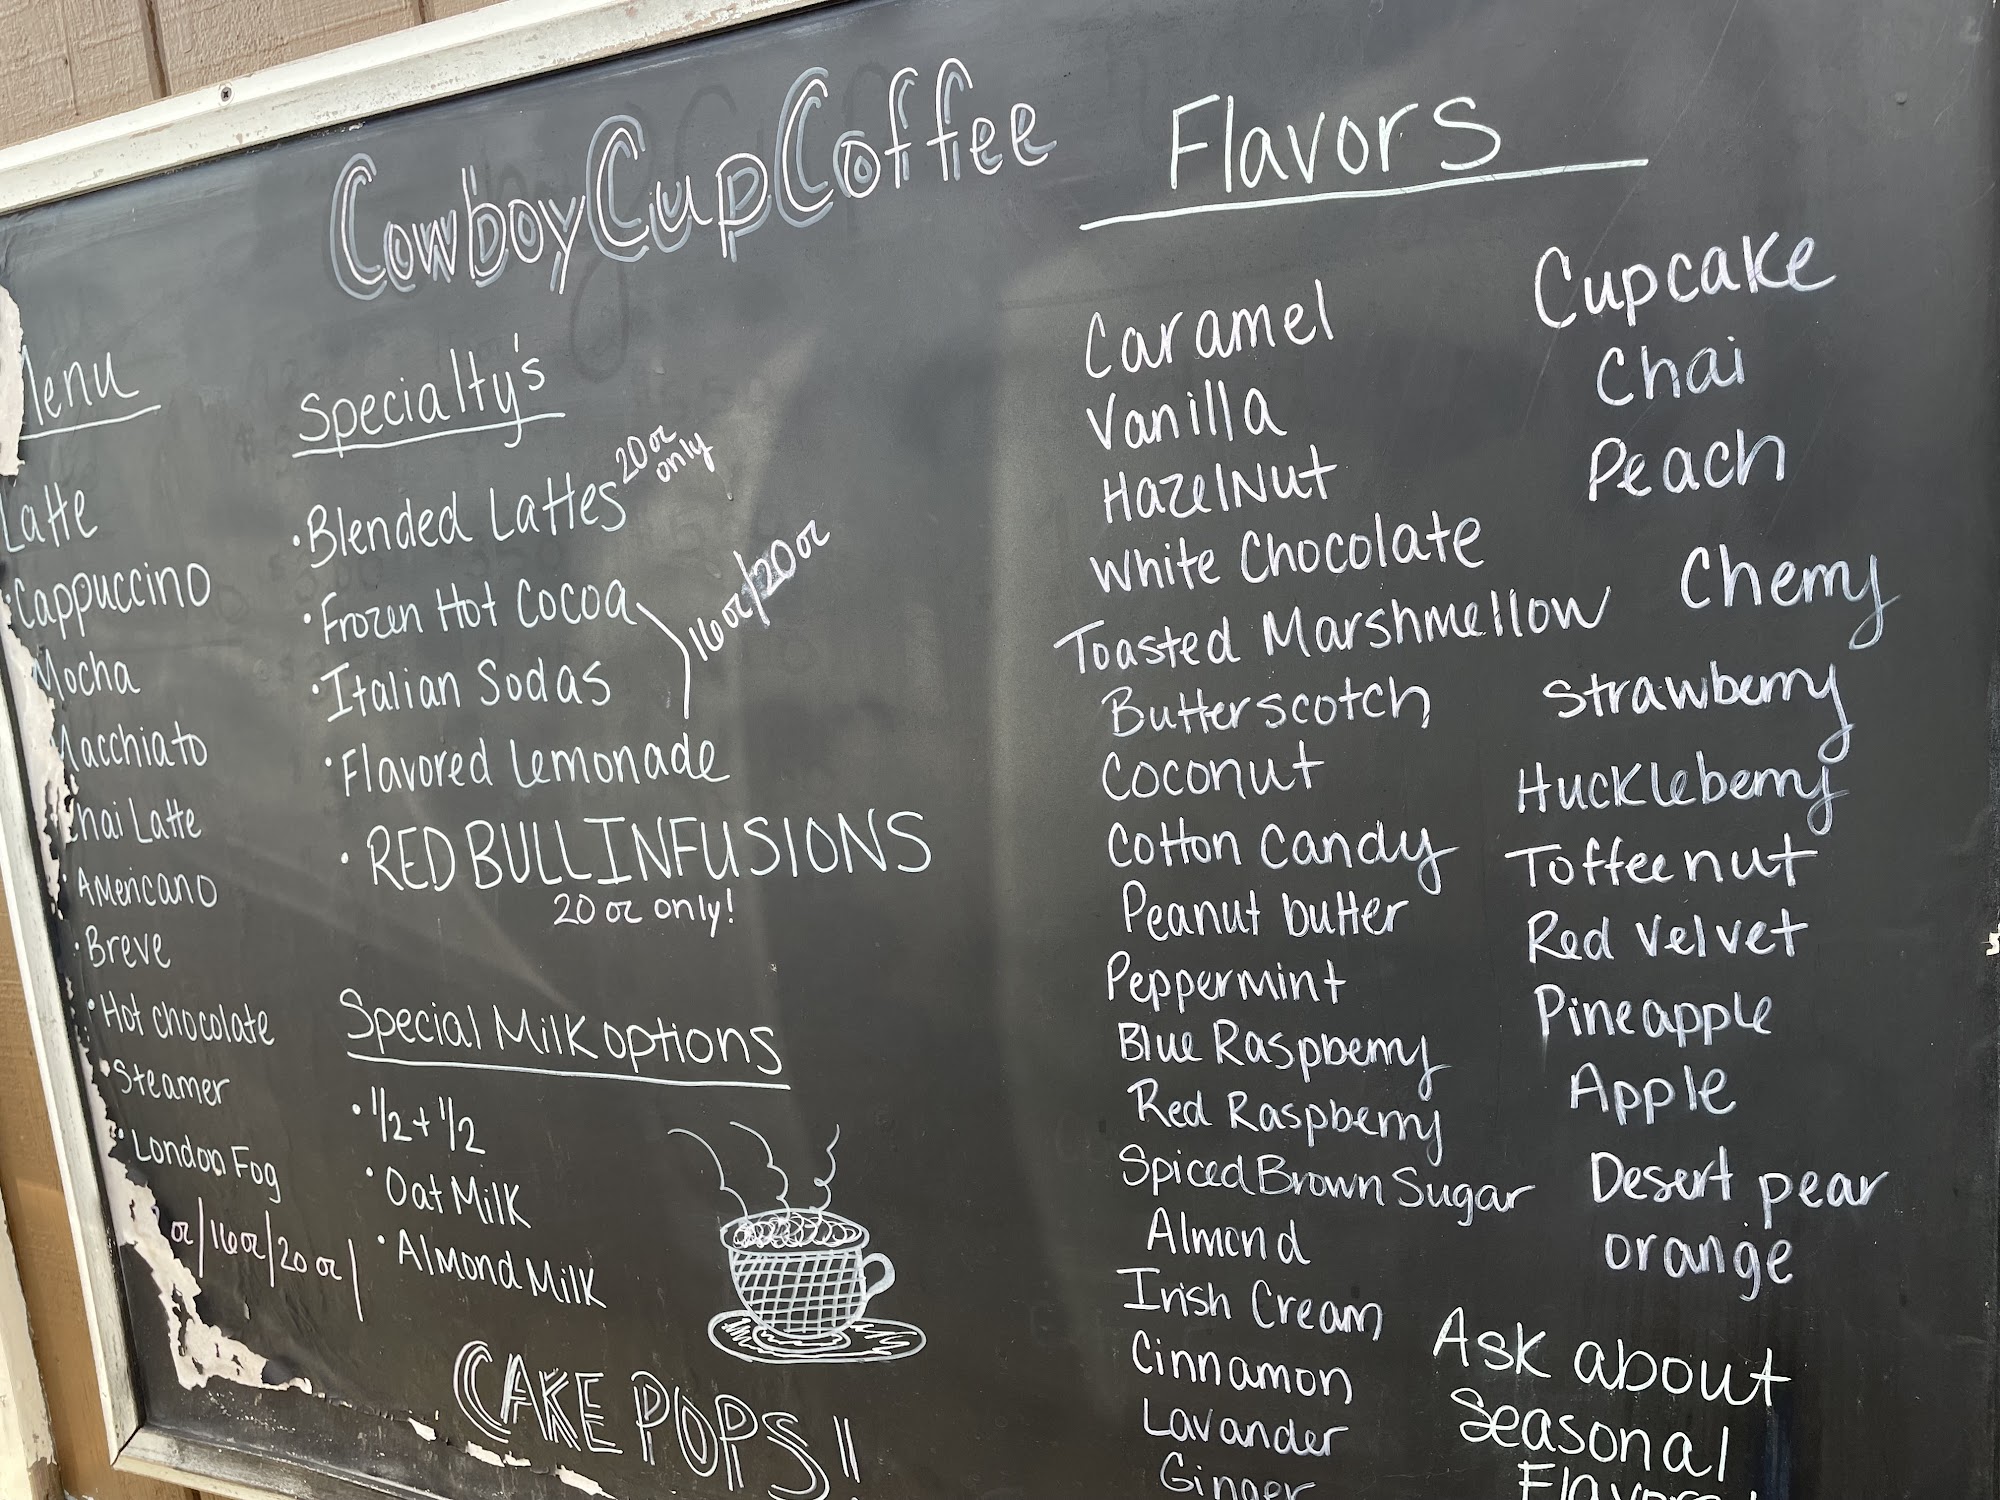 Cowboy Cup Coffee
Menu
Latte
·Cappuccino
Mocha
Macchiato
Chai Latte
·Americano
·Breve
·Hot chocolate
·Steamer
·London Fog
oz/16oz/20oz/
Specialty's
·Blended Lattes 20oz only
·Frozen Hot Cocoa
·Italian Sodas
16oz/20oz
·Flavored Lemonade
·RED BULL INFUSIONS
20 oz only!
Special Milk options
·1/2+1/2
·Oat Milk
·Almond Milk
CAKE POPS!!
Flavors
Caramel
Vanilla
HazelNut
White Chocolate
Toasted Marshmellow
Butterscotch
Coconut
Cotton Candy
Peanut butter
Peppermint
Blue Raspberry
Red Raspberry
Spiced Brown Sugar
Almond
Irish Cream
Cinnamon
Lavander
Ginger
Cupcake
Chai
Peach
Cherry
Strawberry
Huckleberry
Toffeenut
Red Velvet
Pineapple
Apple
Desert pear
orange
Ask about
Seasonal
Flavors!